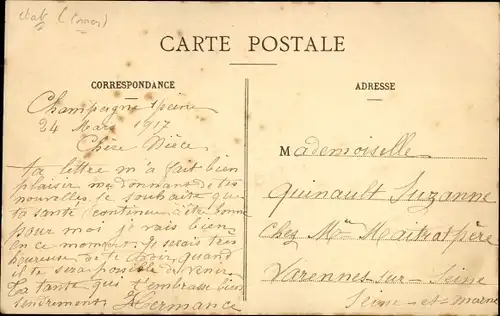 CARTE POSTALE
CORRESPONDANCE
Champagne s/seine
24 Mars 1917
Chère Nièce
ta lettre m'a fait bien
plaisir me donnant de tes
nouvelles. je souhaite que
ta santé continue à être bonne
pour moi je vais bien
en ce moment. je serais très
heureuse de te voir quand
il te sera possible de venir
ta tante qui t'embrasse bien
tendrement Hermance
ADRESSE
Mademoiselle
Quinault Suzanne
chez Mr Maitrat père
Varennes-sur-Seine
Seine-et-Marne